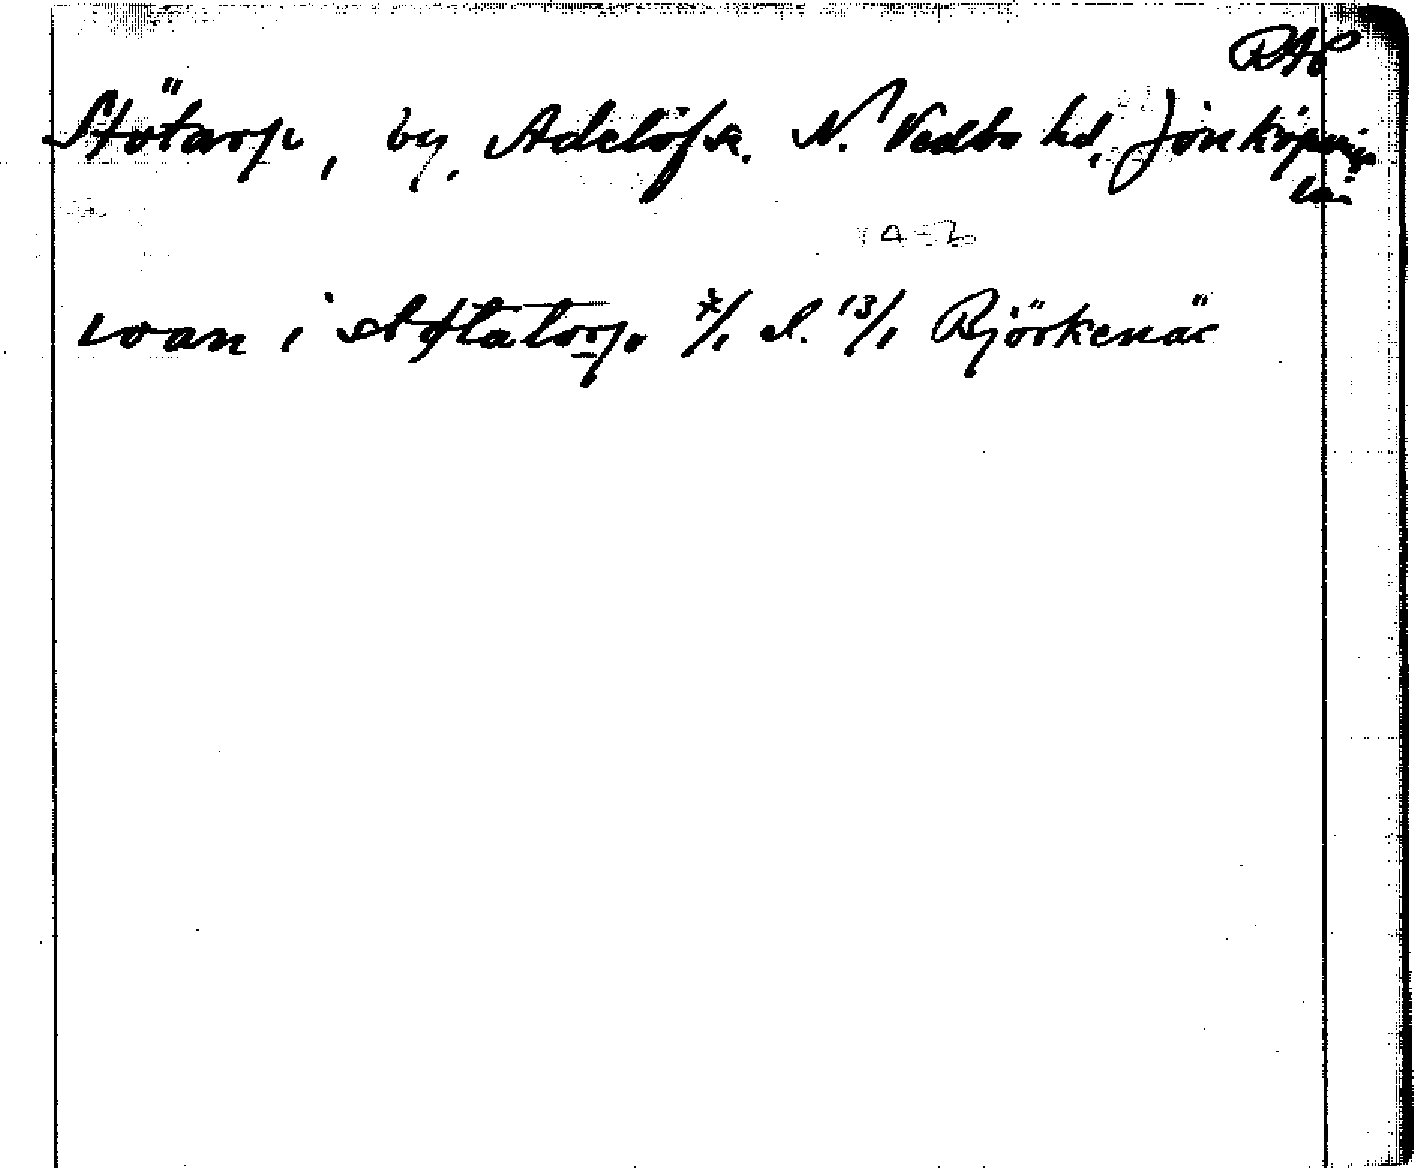 RAP
Stötarp, by, Adelöfsa. N. Vedbo hd, Jönköpings
län
ivan i Støtatorp 7/1 d. 13/1 Björkenäs